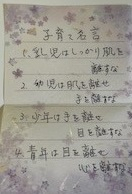 子育て名言
1. 乳児はしっかり肌を
離すな
2. 幼児は肌を離せ
手を離すな
3. 少年は手を離せ
目を離すな
4. 青年は目を離せ
心を離すな